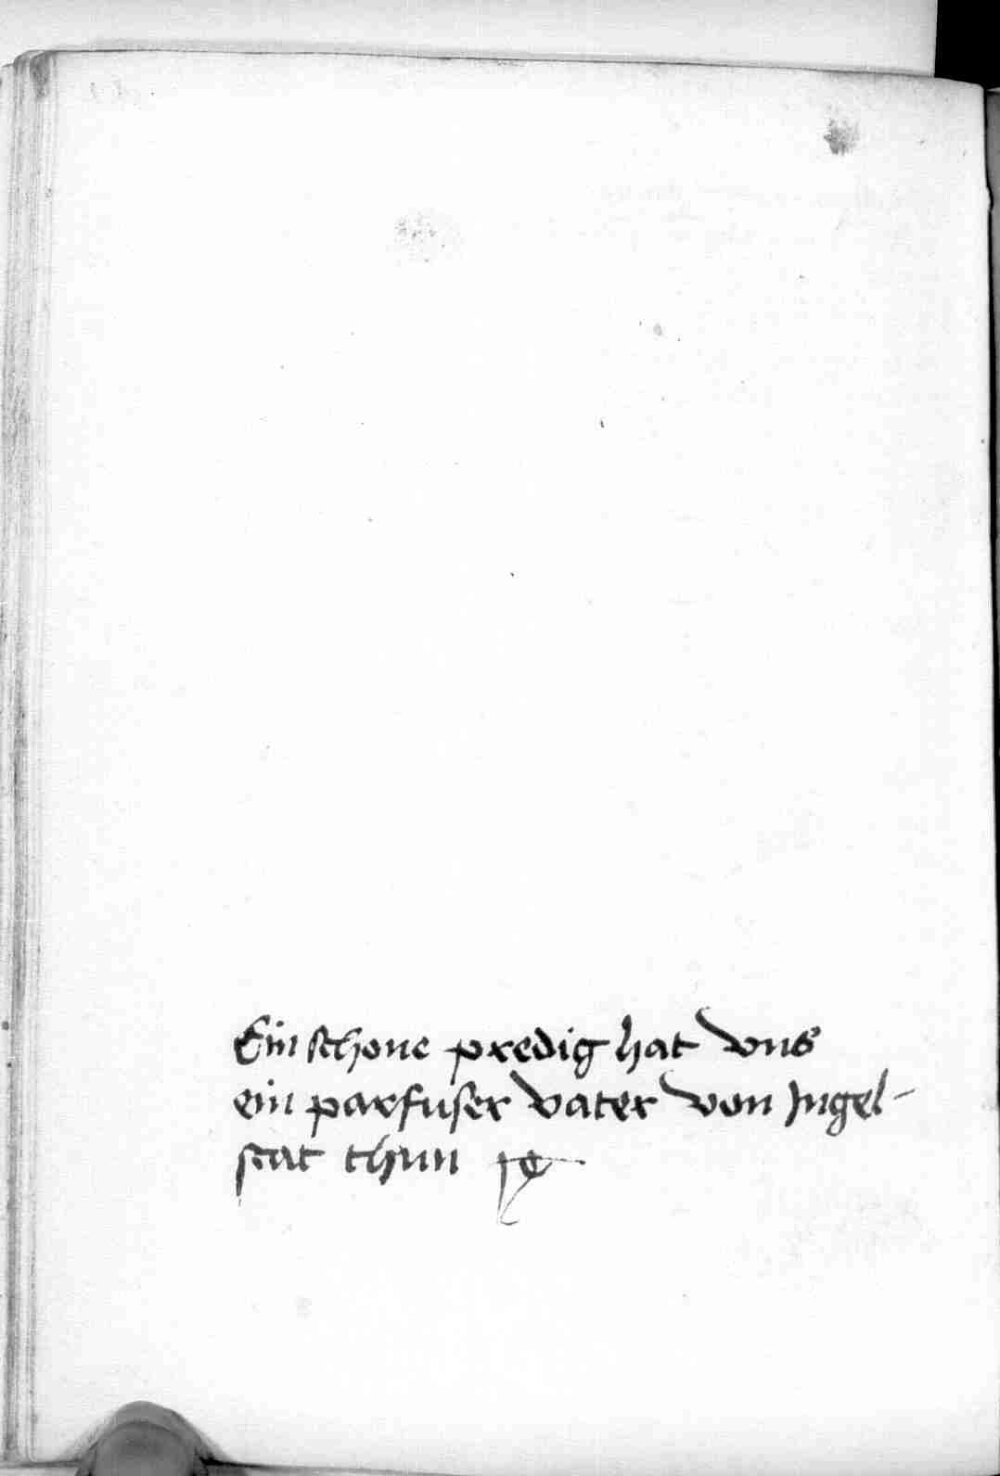 Ein schone predig hat vns
ein parfuser vater von Jngel-
stat thun